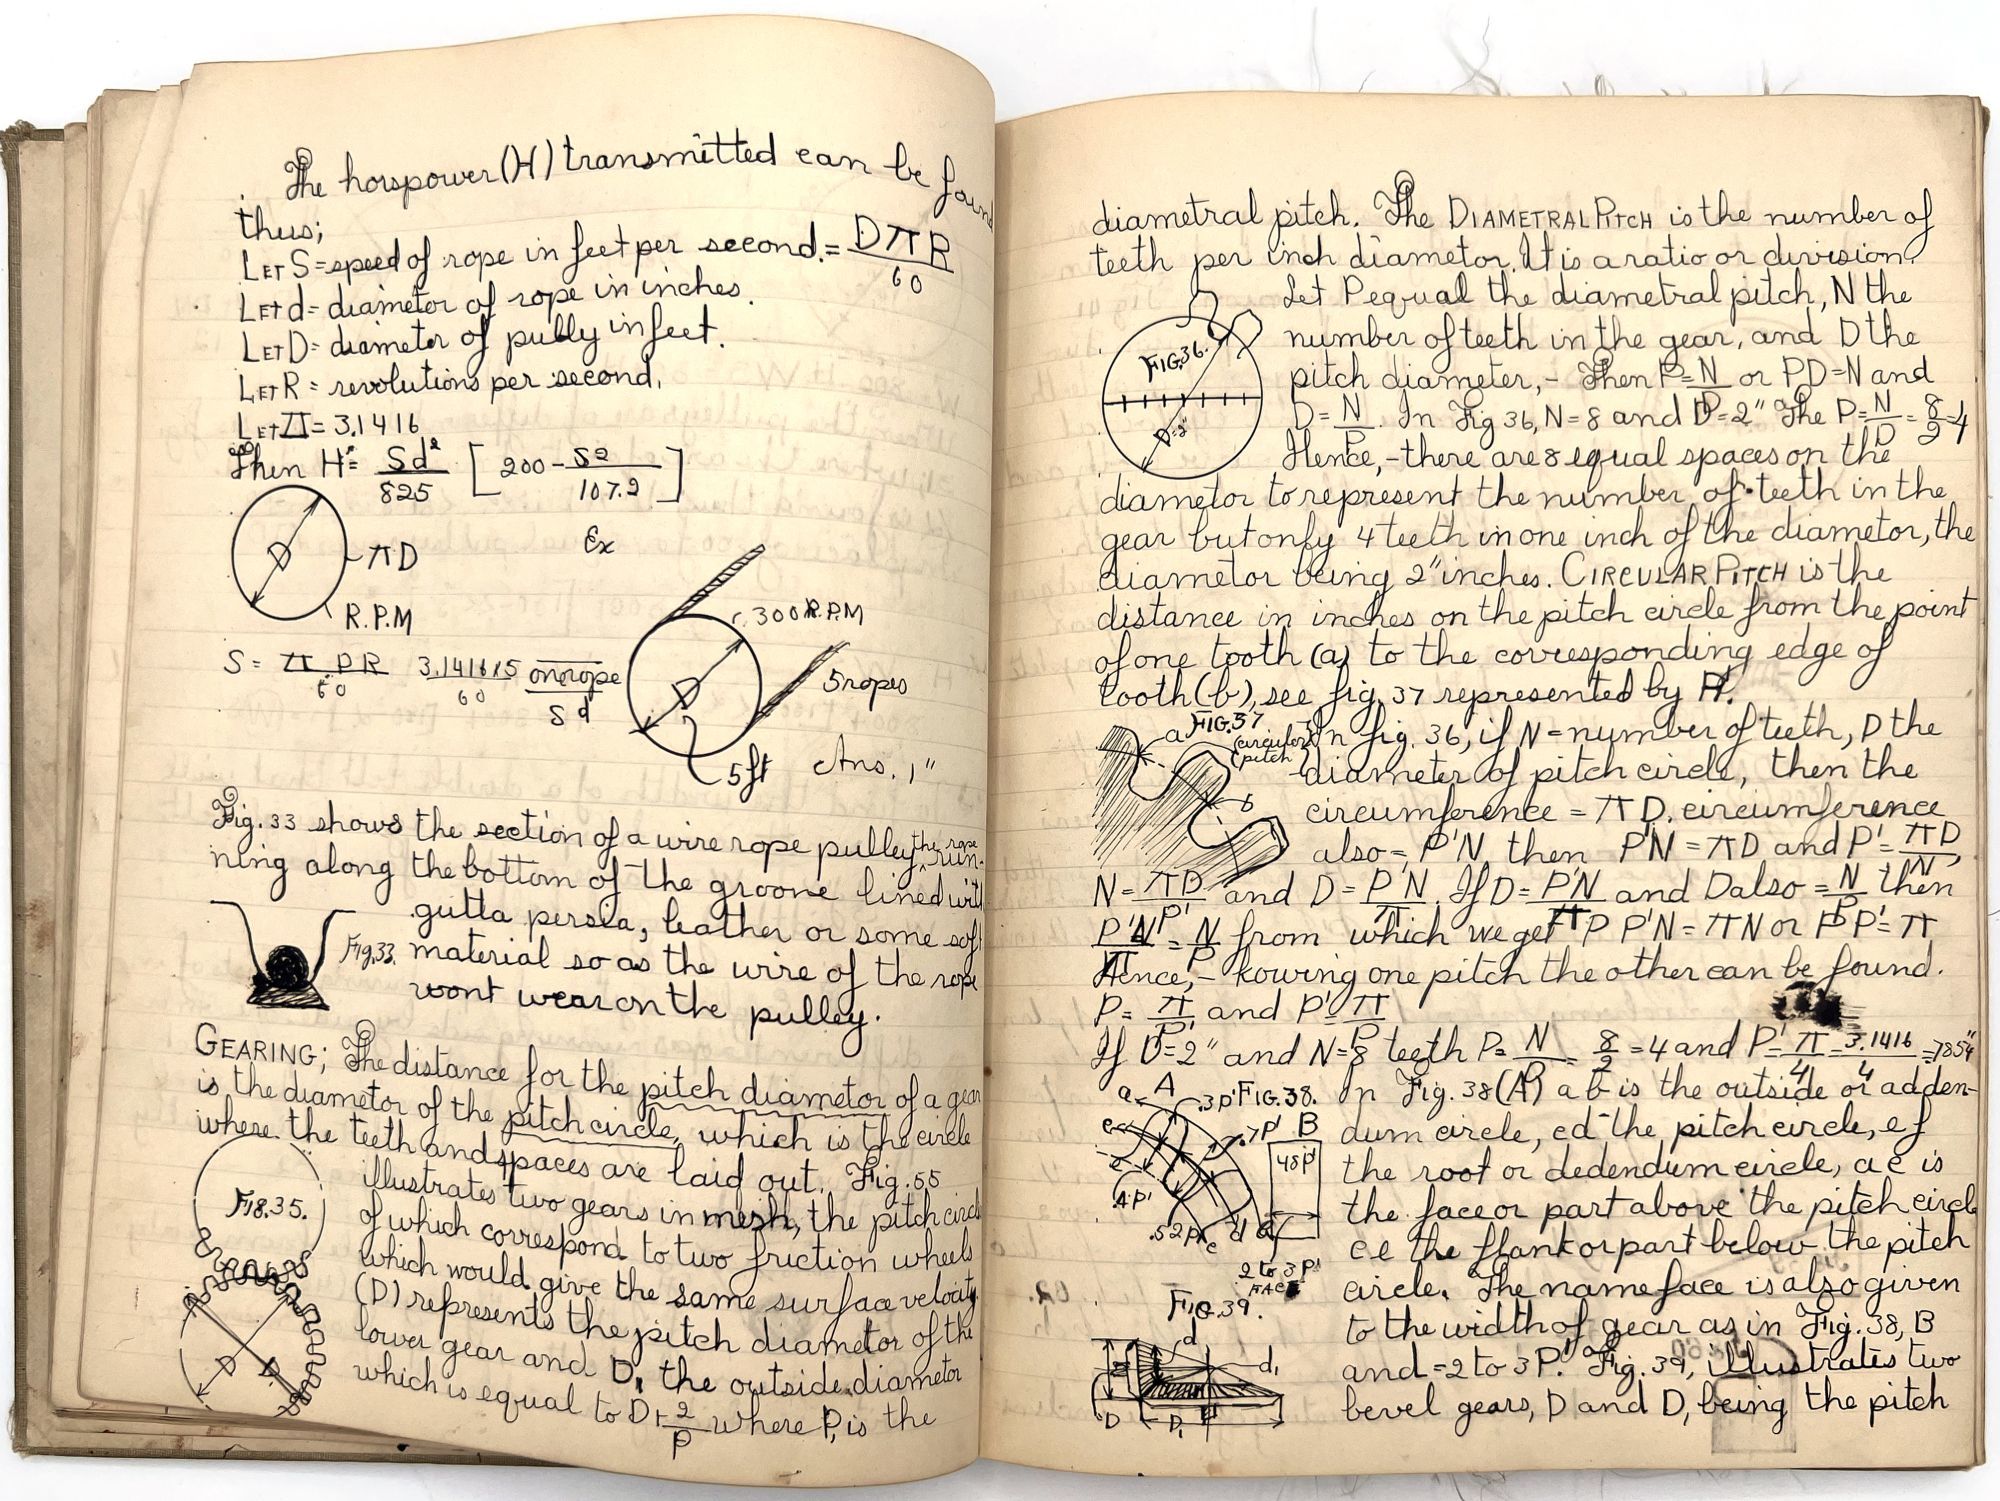 The horspower (H) transmitted can be found
thus;
LET S = speed of rope in feet per second. = DπR/60
LET d = diametor of rope in inches.
LET D = diametor of pully in feet.
LET R = revolutions per second.
LET π = 3.1416
Then H = Sd²/825 [200 - S2/107.2]
D
πD
R.P.M
Ex
300 R.P.M
S = πDR/60 3.1416x15/60 one rope/Sd
D
5 ropes
5ft
Ans. 1"
Fig. 33 shows the section of a wire rope pulley, the rope run-
ning along the bottom of the groone lined with
gutta persia, leather or some soft
Fig. 33. material so as the wire of the rope
wont wear on the pulley.
GEARING; The distance for the pitch diametor of a gear
is the diametor of the pitch circle, which is the circle
where the teeth and spaces are laid out. Fig. 55
illustrates two gears in mesh, the pitch circle
FIG.35.
of which correspond to two friction wheels
which would give the same surface velocity.
(D) represents the pitch diametor of the
lower gear and D, the outside diametor
D D,
which is equal to D+2/P where P, is the
diametral pitch. The DIAMETRAL PITCH is the number of
teeth per inch diametor. It is a ratio or division.
Let P equal the diametral pitch, N the
number of teeth in the gear, and D the
FIG.36.
pitch diameter,- Then P=N/D or PD=N and
D=N/P. In Fig 36, N=8 and D=2" The P=N/D=8/2=4
D=2"
Hence,-there are 8 equal spaces on the
diametor to represent the number of teeth in the
gear but onfy 4 teeth in one inch of the diametor, the
diametor being 2" inches. CIRCULAR PITCH is the
distance in inches on the pitch circle from the point
of one tooth (a) to the corresponding edge of
tooth (b), see fig. 37 represented by P'.
a FIG.37 (circular pitch) b
In fig. 36, if N=number of teeth, D the
diameter of pitch circle, then the
circumference = πD. circumference
also=, P'N then P'N=πD and P'=πD/N,
N=πD/P' and D=P'N/π. If D=P'N/π and D also=N/P then
P'N/π=N/P from which we get P P'N=πN or P P'=π
Hence,- kowing one pitch the other can be found.
P=π/P' and P'=π/P
If D=2" and N=8 teeth P=N/D=8/2=4 and P'=π/4=3.1416/4=.7854"
a A .3P' FIG.38.
In Fig. 38 (A) a b is the outside or adden-
c .7P' B
dum circle, cd the pitch circle, ef
e 48P'
the root or dedendum circle, a c is
.4P'
the face or part above the pitch circle
.52P' e d
c e the flank or part below the pitch
2 to 3 P'
FACE
circle. The name face is also given
FIG.39.
to the width of gear as in Fig. 38, B
d d,
and =2 to 3P'. Fig. 39, illustrates two
D D,
bevel gears, D and D, being the pitch